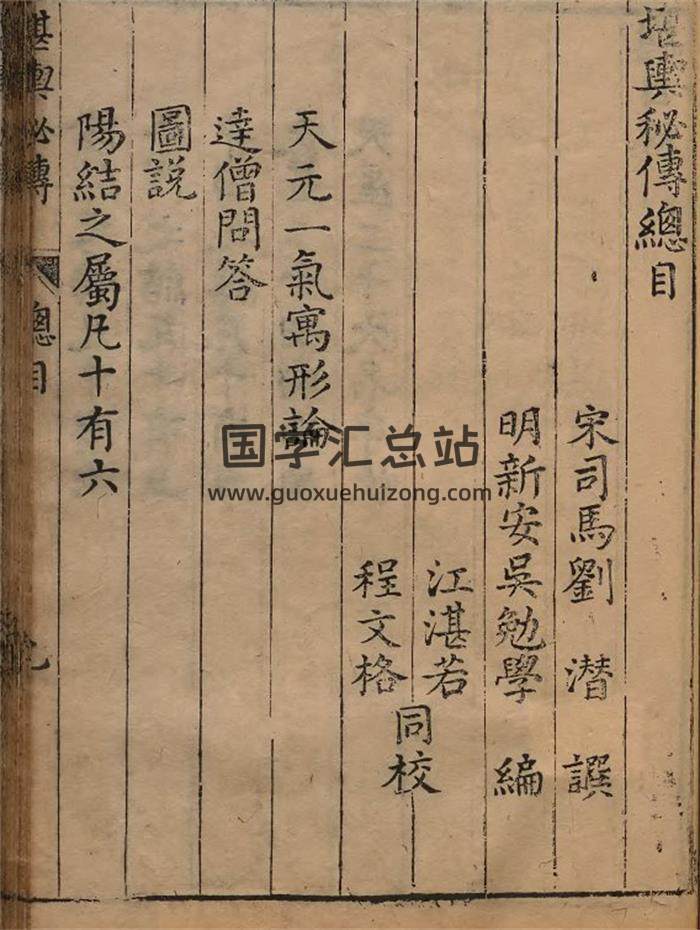 堪輿秘傳總目
宋司馬劉潛譔
明新安吳勉學編
江湛若
程文格
同校
天元一氣寓形論
達僧問答
圖説
陽結之屬凡十有六
堪輿秘傳
總目
国学汇总站
www.guoxuehuizong.com